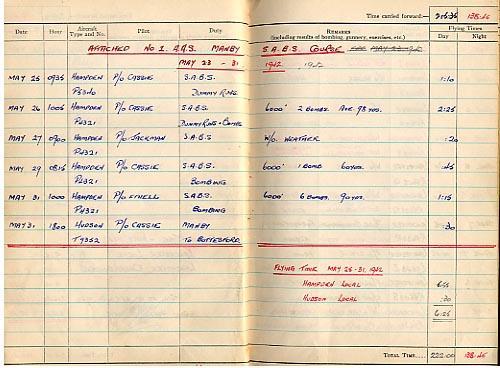 Time carried forward:— 215:35 138:45
Date Hour Aircraft Type and No. Pilot Duty REMARKS (including results of bombing, gunnery, exercises, etc.) Flying Times Day Night
ATTACHED No 1. A.A.S. MANBY S.A.B.S. COURSE
MAY 23 - 31. 1942 1942
MAY 25 0935 HAMPDEN P/O CASSIE S.A.B.S. 1:10
DUMMY RUNS
MAY 26 1005 HAMPDEN P/O CASSIE S.A.B.S. 6000' 2 BOMBS. AVE. 98 YDS. 2:25
P4321 DUMMY RUNS + BOMBS
MAY 27 0900 HAMPDEN P/O JACKMAN S.A.B.S W/O. WEATHER :20
P4321
MAY 29 0815 HAMPDEN P/O CASSIE S.A.B.S. 6000' 1 BOMB 60 YDS. :45
P4321 BOMBING
MAY 31 1000 HAMPDEN P/O S.A.B.S. 6000' 6 BOMBS. 90 YDS. 1:15
P4321 BOMBING
MAY 31 1800 HUDSON P/O CASSIE MANBY :30
T9352 TO BOTTESFORD
FLYING TIME MAY 25-31. 1942
HAMPDEN LOCAL
HUDSON LOCAL :30
6:25
TOTAL TIME.... 222:00 138:45